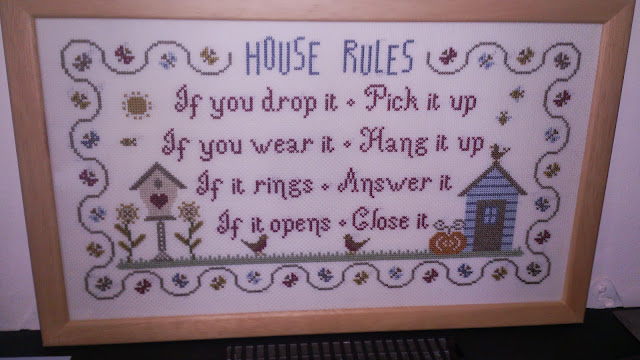 HOUSE RULES
If you drop it • Pick it up
If you wear it • Hang it up
If it rings • Answer it
If it opens • Close it